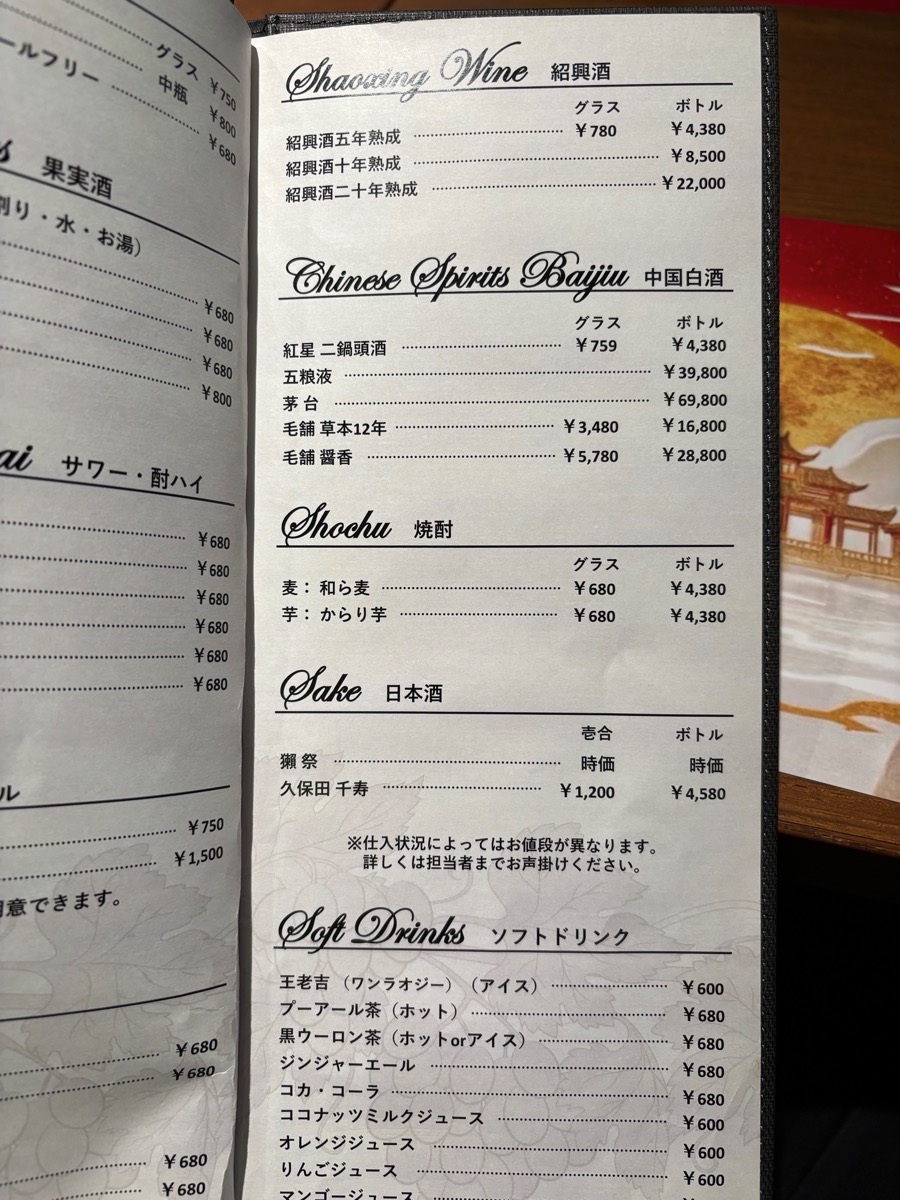 グラス ¥750
中瓶 ¥800
ールフリー ¥680
果実酒
割り・水・お湯）
¥680
¥680
¥680
¥800
ai サワー・酎ハイ
¥680
¥680
¥680
¥680
¥680
¥680
ル
¥750
¥1,500
用意できます。
¥680
¥680
¥680
¥680
Shaoxing Wine 紹興酒
グラス ボトル
紹興酒五年熟成 ¥780 ¥4,380
紹興酒十年熟成 ¥8,500
紹興酒二十年熟成 ¥22,000
Chinese Spirits Baijiu 中国白酒
グラス ボトル
紅星 二鍋頭酒 ¥759 ¥4,380
五粮液 ¥39,800
茅台 ¥69,800
毛舗 草本12年 ¥3,480 ¥16,800
毛舗 醤香 ¥5,780 ¥28,800
Shochu 焼酎
グラス ボトル
麦： 和ら麦 ¥680 ¥4,380
芋： からり芋 ¥680 ¥4,380
Sake 日本酒
壱合 ボトル
獺祭 時価 時価
久保田 千寿 ¥1,200 ¥4,580
※仕入状況によってはお値段が異なります。
詳しくは担当者までお声掛けください。
Soft Drinks ソフトドリンク
王老吉 （ワンラオジー）（アイス） ¥600
プーアール茶（ホット） ¥680
黒ウーロン茶（ホットorアイス） ¥680
ジンジャーエール ¥680
コカ・コーラ ¥680
ココナッツミルクジュース ¥600
オレンジジュース ¥600
りんごジュース ¥600
マンゴージュース